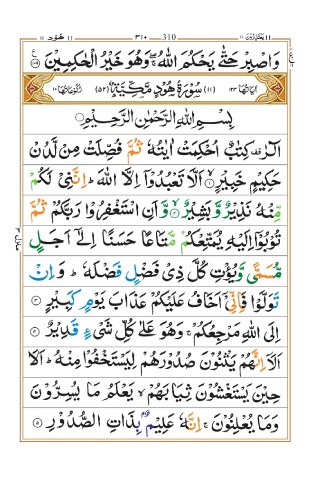 ۱۱ ھُوْد ۱۱ ۳۱۰ 310 یعتذرون ۱۱
وَاصْبِرْ حَتّٰى يَحْكُمَ اللّٰهُ ۚ وَهُوَ خَيْرُ الْحٰكِمِيْنَ ۝۱۰۹
اٰيَاتُهَا ۱۲۳ (۱۱) سُوْرَةُ هُوْدٍ مَّكِّيَّةٌ (۵۲) رُكُوْعَاتُهَا ۱۰
بِسْمِ اللّٰهِ الرَّحْمٰنِ الرَّحِيْمِ
الٓرٰ ۫ كِتٰبٌ اُحْكِمَتْ اٰيٰتُهٗ ثُمَّ فُصِّلَتْ مِنْ لَّدُنْ
حَكِيْمٍ خَبِيْرٍ ۝۱ اَلَّا تَعْبُدُوْۤا اِلَّا اللّٰهَ ؕ اِنَّنِيْ لَكُمْ
مِّنْهُ نَذِيْرٌ وَّبَشِيْرٌ ۝۲ وَّاَنِ اسْتَغْفِرُوْا رَبَّكُمْ ثُمَّ
تُوْبُوْۤا اِلَيْهِ يُمَتِّعْكُمْ مَّتَاعًا حَسَنًا اِلٰۤى اَجَلٍ
مُّسَمًّى وَّيُؤْتِ كُلَّ ذِيْ فَضْلٍ فَضْلَهٗ ؕ وَاِنْ
تَوَلَّوْا فَاِنِّيْۤ اَخَافُ عَلَيْكُمْ عَذَابَ يَوْمٍ كَبِيْرٍ ۝۳
اِلَى اللّٰهِ مَرْجِعُكُمْ ۚ وَهُوَ عَلٰى كُلِّ شَيْءٍ قَدِيْرٌ ۝۴
اَلَاۤ اِنَّهُمْ يَثْنُوْنَ صُدُوْرَهُمْ لِيَسْتَخْفُوْا مِنْهُ ؕ اَلَا
حِيْنَ يَسْتَغْشُوْنَ ثِيَابَهُمْ ۙ يَعْلَمُ مَا يُسِرُّوْنَ
وَمَا يُعْلِنُوْنَ ۚ اِنَّهٗ عَلِيْمٌۢ بِذَاتِ الصُّدُوْرِ ۝۵